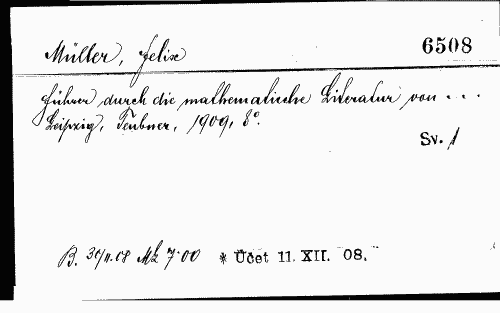 Müller, Felix 6508
Führer durch die mathematische Literatur von . . .
Leipzig, Teubner, 1909, 8°.
Sv. 1
B. 30/11.08 Mk 7·00 * Účet 11. XII. 08.